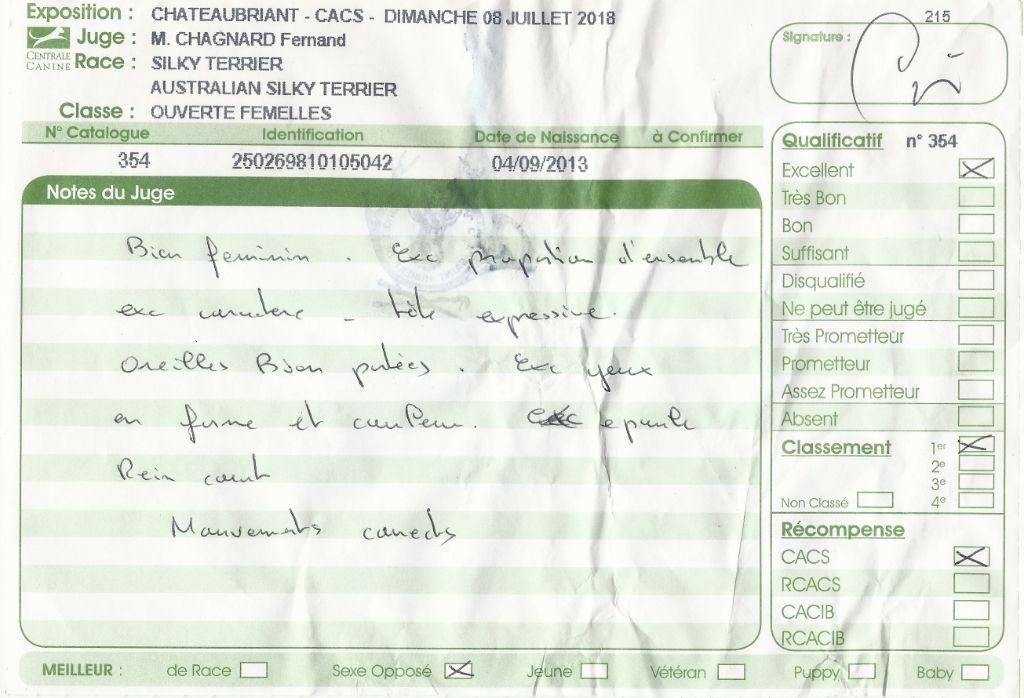 Exposition : CHATEAUBRIANT - CACS - DIMANCHE 08 JUILLET 2018
215
Juge : M. CHAGNARD Fernand
Signature :
CENTRALE CANINE
Race : SILKY TERRIER
AUSTRALIAN SILKY TERRIER
Classe : OUVERTE FEMELLES
N° Catalogue Identification Date de Naissance à Confirmer
354 250269810105042 04/09/2013
Notes du Juge
Bien feminin . Exc proportion d'ensemble
exc caractere - tête expressive.
Oreilles Bien portées . Exc yeux
en forme et couleur. exc epaule
Rein court
Mouvements corrects
Qualificatif n° 354
Excellent
Très Bon
Bon
Suffisant
Disqualifié
Ne peut être jugé
Très Prometteur
Prometteur
Assez Prometteur
Absent
Classement 1er
2e
3e
Non Classé 4e
Récompense
CACS
RCACS
CACIB
RCACIB
MEILLEUR : de Race Sexe Opposé Jeune Vétéran Puppy Baby